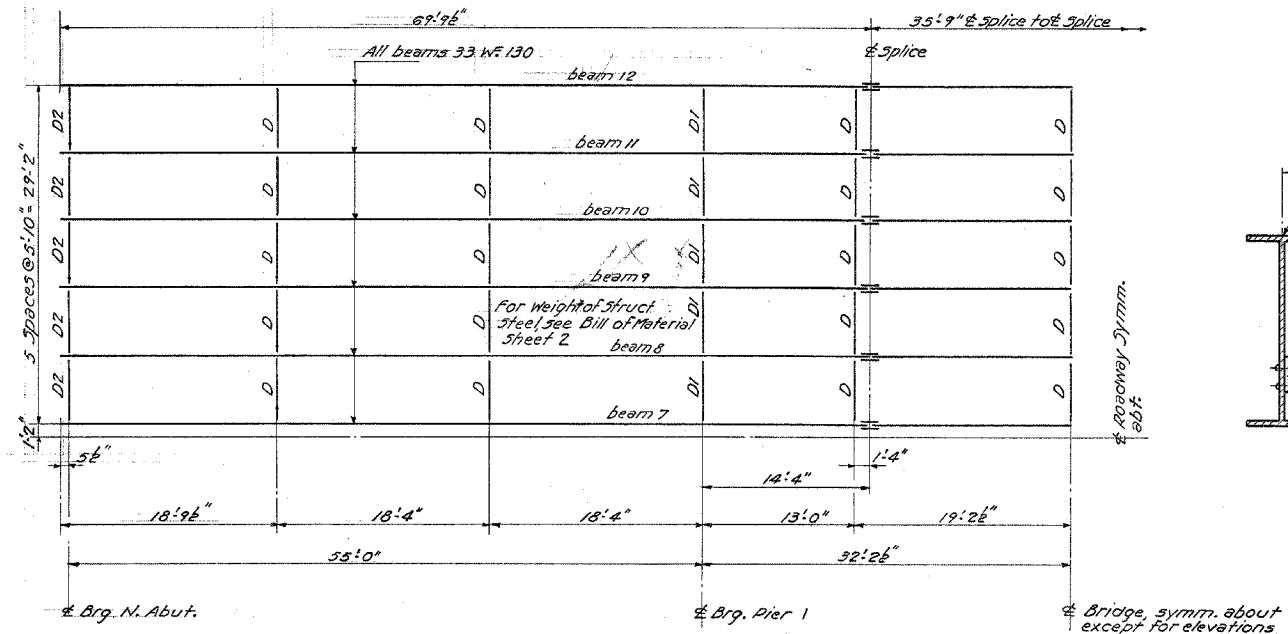 69'-9½"
35'-9" ℄ Splice to ℄ Splice
All beams 33 WF 130
℄ Splice
beam 12
D2 D D D1 D D
beam 11
D2 D D D1 D D
beam 10
D2 D D D1 D D
beam 9
For Weight of Struct.
Steel, see Bill of Material
Sheet 2
D2 D D D1 D D
beam 8
D2 D D D1 D D
beam 7
5 Spaces @ 5'-10" = 29'-2"
1'-2"
℄ Roadway Symm.
abt.
5½"
1'-4"
14'-4"
18'-9½"
18'-4"
18'-4"
13'-0"
19'-2½"
55'-0"
32'-2½"
℄ Brg. N. Abut.
℄ Brg. Pier 1
℄ Bridge, symm. about
except for elevations